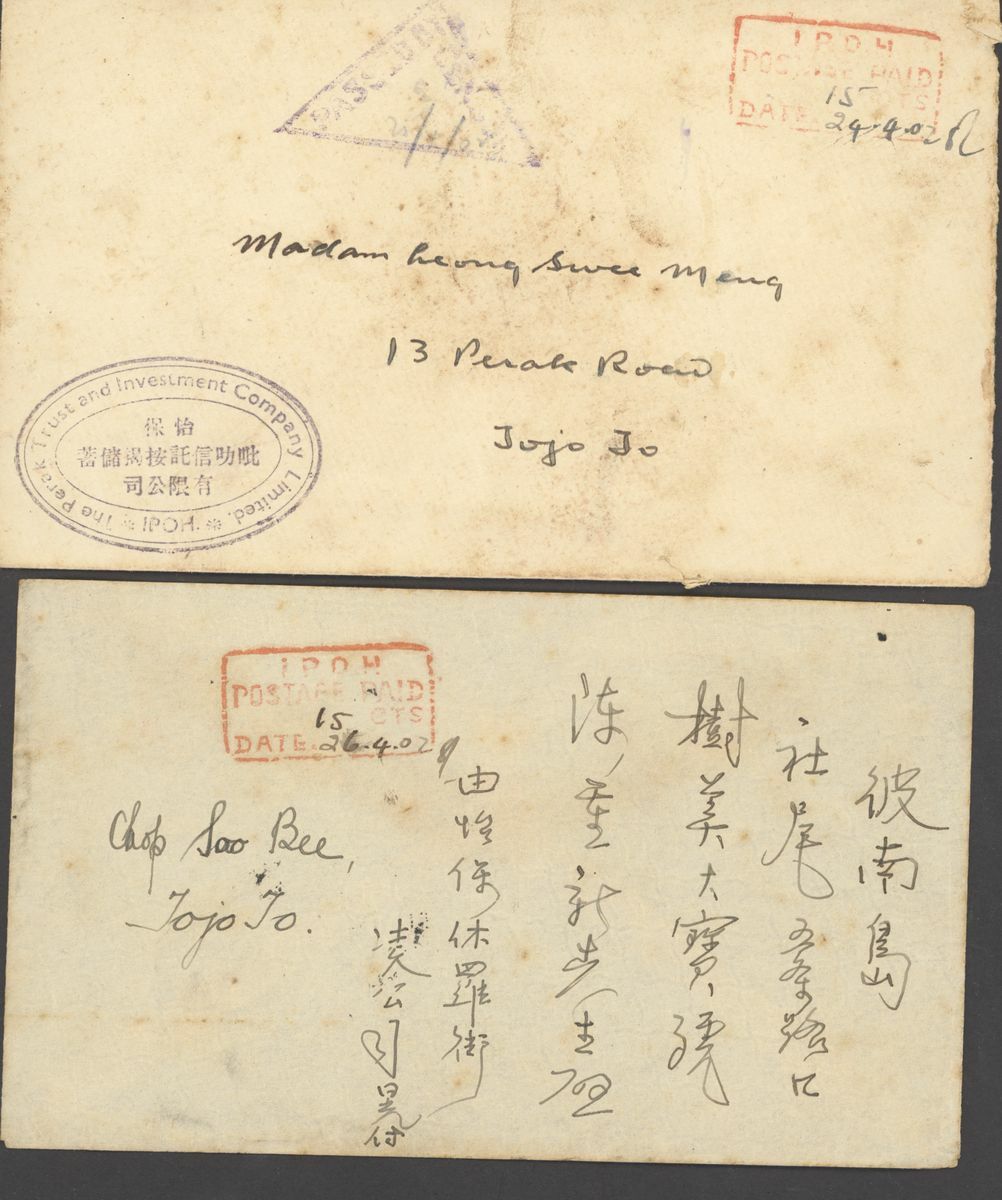 PASSED BY
IPOH
POSTAGE PAID
15 CTS
DATE 24.4.02
Madam Leong Swee Meng
13 Perak Road
Tojo To
The Perak Trust and Investment Company Limited.
* IPOH *
怡保
毗叻信託按揭儲蓄
有限公司
IPOH
POSTAGE PAID
15 CTS
DATE 26.4.02
Chop Soo Bee,
Tojo To.
彼南島
社尾五条路口
樹美大寶號
陳新先生啟
由怡保休羅街
公司付